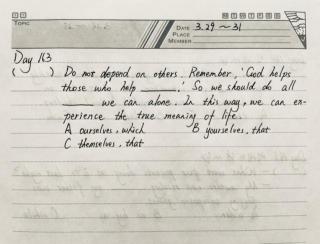 TOPIC
DATE 3.29~31
PLACE
MEMBER
Day 163
( ) Do not depend on others. Remember, 'God helps
those who help ______.' So we should do all
______ we can alone. In this way, we can ex-
perience the true meaning of life.
A ourselves, which B yourselves, that
C themselves, that